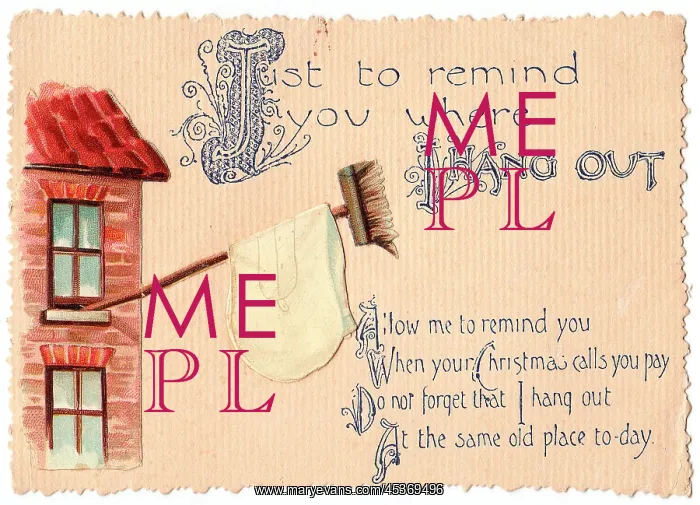 Just to remind
you where
I HANG OUT
Allow me to remind you
When your Christmas calls you pay
Do not forget that I hang out
At the same old place to-day.
ME
PL
ME
PL
www.maryevans.com/45369496